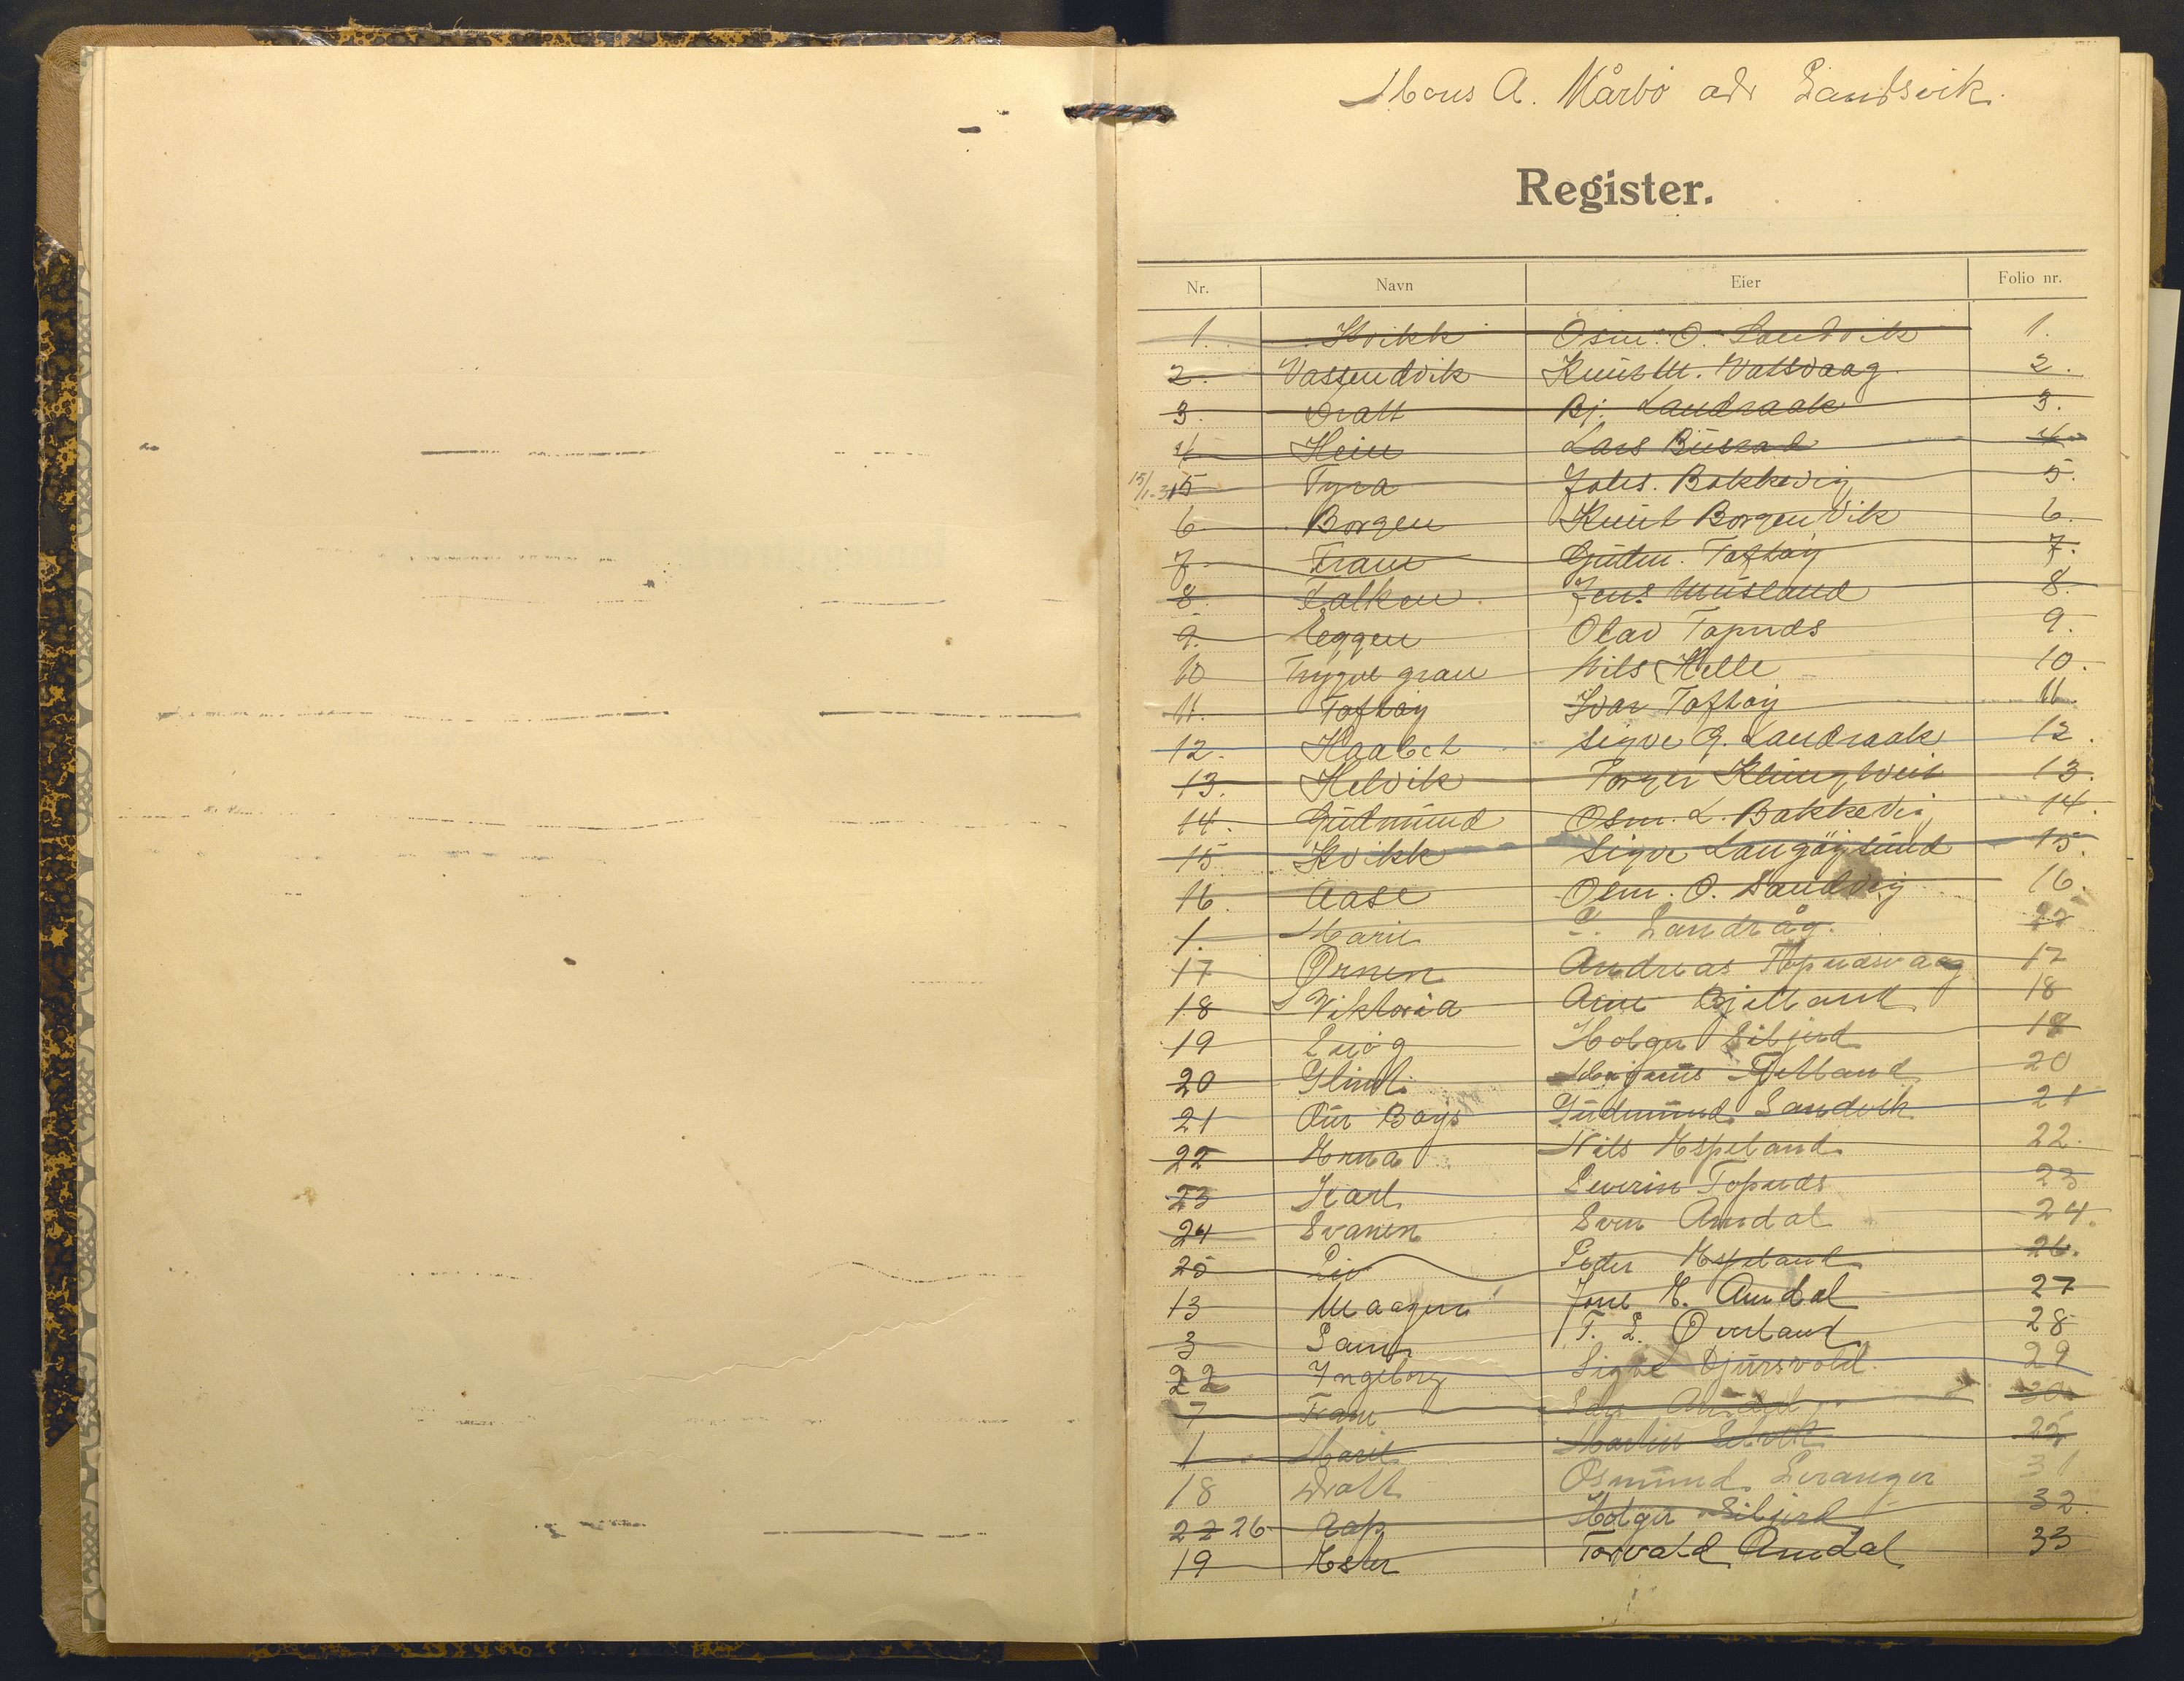 Mons A. Mårbö adr Landsvik.
Register.
Nr. Navn Eier Folio nr.
1. Kvikk Osm. O. Sandvik 1.
2. Vassendvik Knut M. Vatsvaag 2.
3. Dratt Bj. Landraak 3.
4 Hein Lars Busrad 4
15/1-31 5 Tyra Johs. Bakkevig 5.
6 Borgen Knut Borgenvik 6.
7 Fram Gudm. Taftøy 7.
8. Falken Jens Musland 8.
9. Heggen Olav Tapnds 9.
10 Trygve gran Nils Helle 10.
11. Taftøy Ivar Taftøy 11.
12. Haabet Sigve G. Landraak 12.
13. Helvik Torger Klungtveit 13.
14. Gudmund Osm. L. Bakkevig 14.
15 Kvikk Sigve Langøysund 15.
16. Aase Osm. O. Sandvig 16.
1. Marie Landråg. 22
17 Ørnen Andreas Tøpndsvaag 17
18 Viktoria Arne Bjelland 18
19 Snøg Holger Siljerd 18
20 Glimt Magnus Fjelland 20
21 Our Boys Gudmund Sandvik 21
22 Erna Nils Espeland 22.
23 Karl Severin Topnds 23
24 Svanen Sven Amdal 24.
25 Liv Peder Espeland 26.
13 Maagen Jone E. Amdal 27
3 T. L. Overland 28
22 Ingeborg Sigve Djursvold. 29
7 Fram Amdal 30
1 Marie Martin Selvik 25
18 Dratt Osmund Leranger 31
22 26 Rap Holger Siljerd 32.
19 Ester Torvald Amdal 33